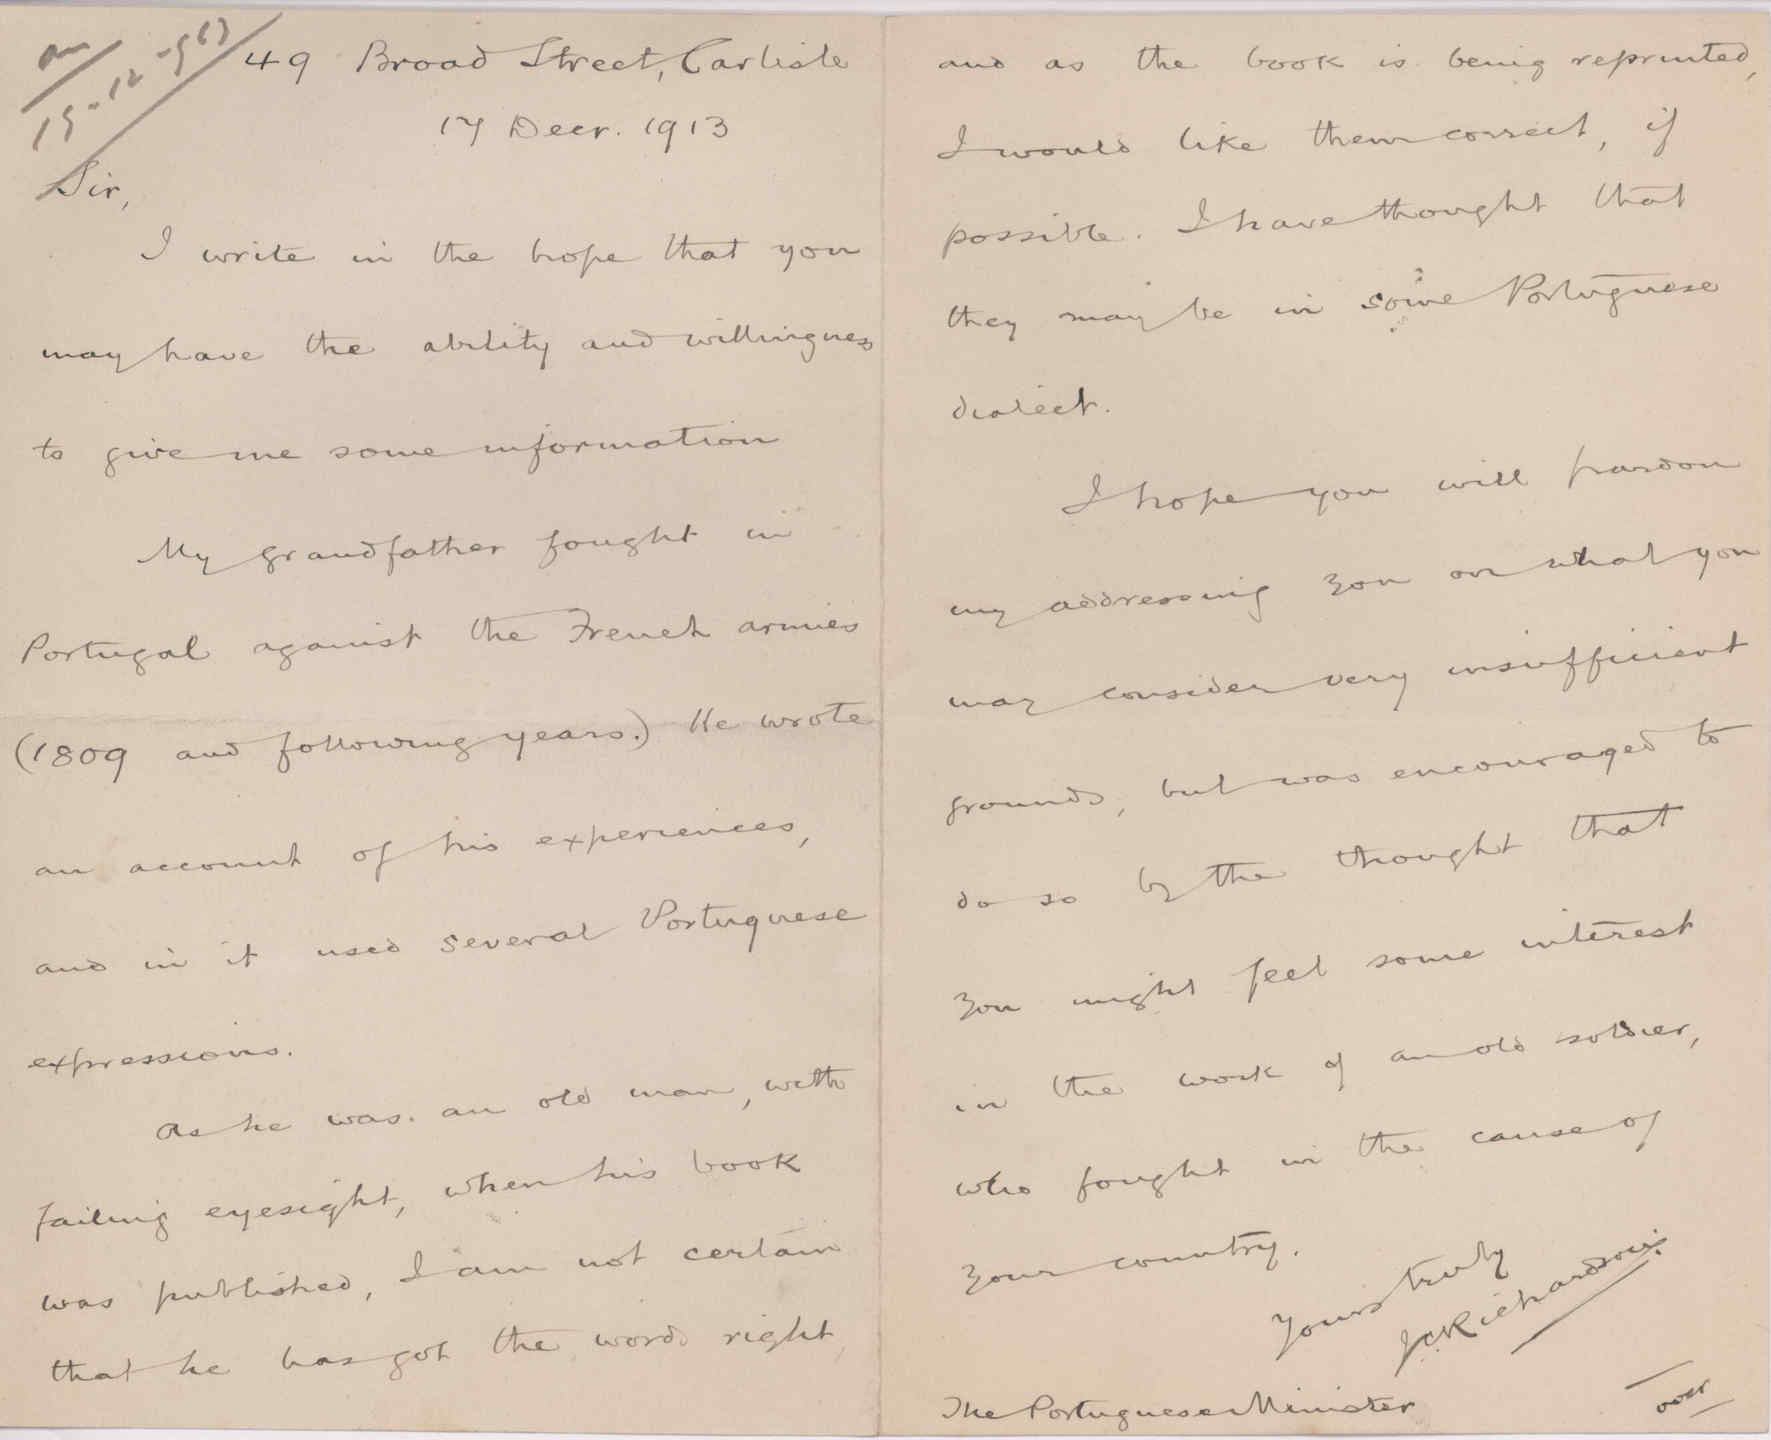 49 Broad Street, Carlisle
17 Decr. 1913
Sir,
I write in the hope that you
may have the ability and willingness
to give me some information
My grandfather fought in
Portugal against the French armies
(1809 and following years.) He wrote
an account of his experiences,
and in it used several Portuguese
expressions.
As he was an old man, with
failing eyesight, when his book
was published, I am not certain
that he has got the words right,
and as the book is being reprinted,
I would like them correct, if
possible. I have thought that
they may be in some Portuguese
dialect.
I hope you will pardon
my addressing you on what you
may consider very insufficient
grounds, but was encouraged to
do so by the thought that
you might feel some interest
in the work of an old soldier,
who fought in the cause of
your country.
Yours truly
J.C. Richardson.
The Portuguese Minister
over